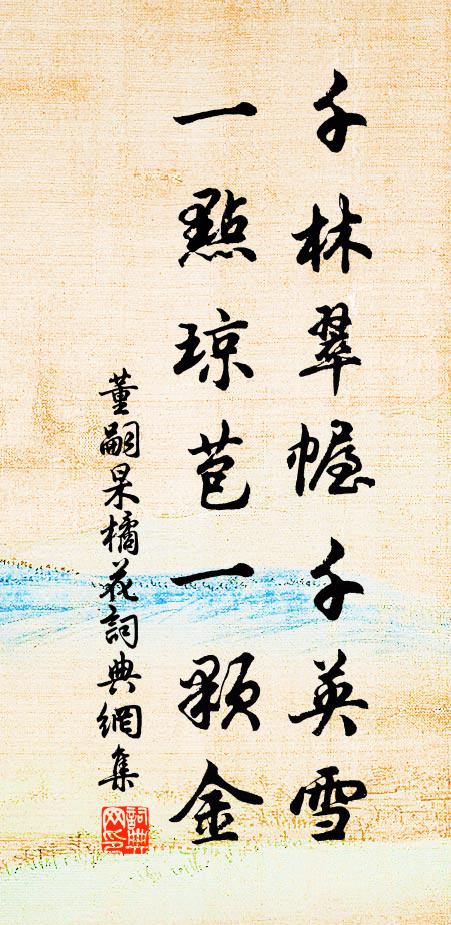 千林翠幄千英雪
一點琼苞一顆金
董嗣杲橘花詞典網集
詞典网印